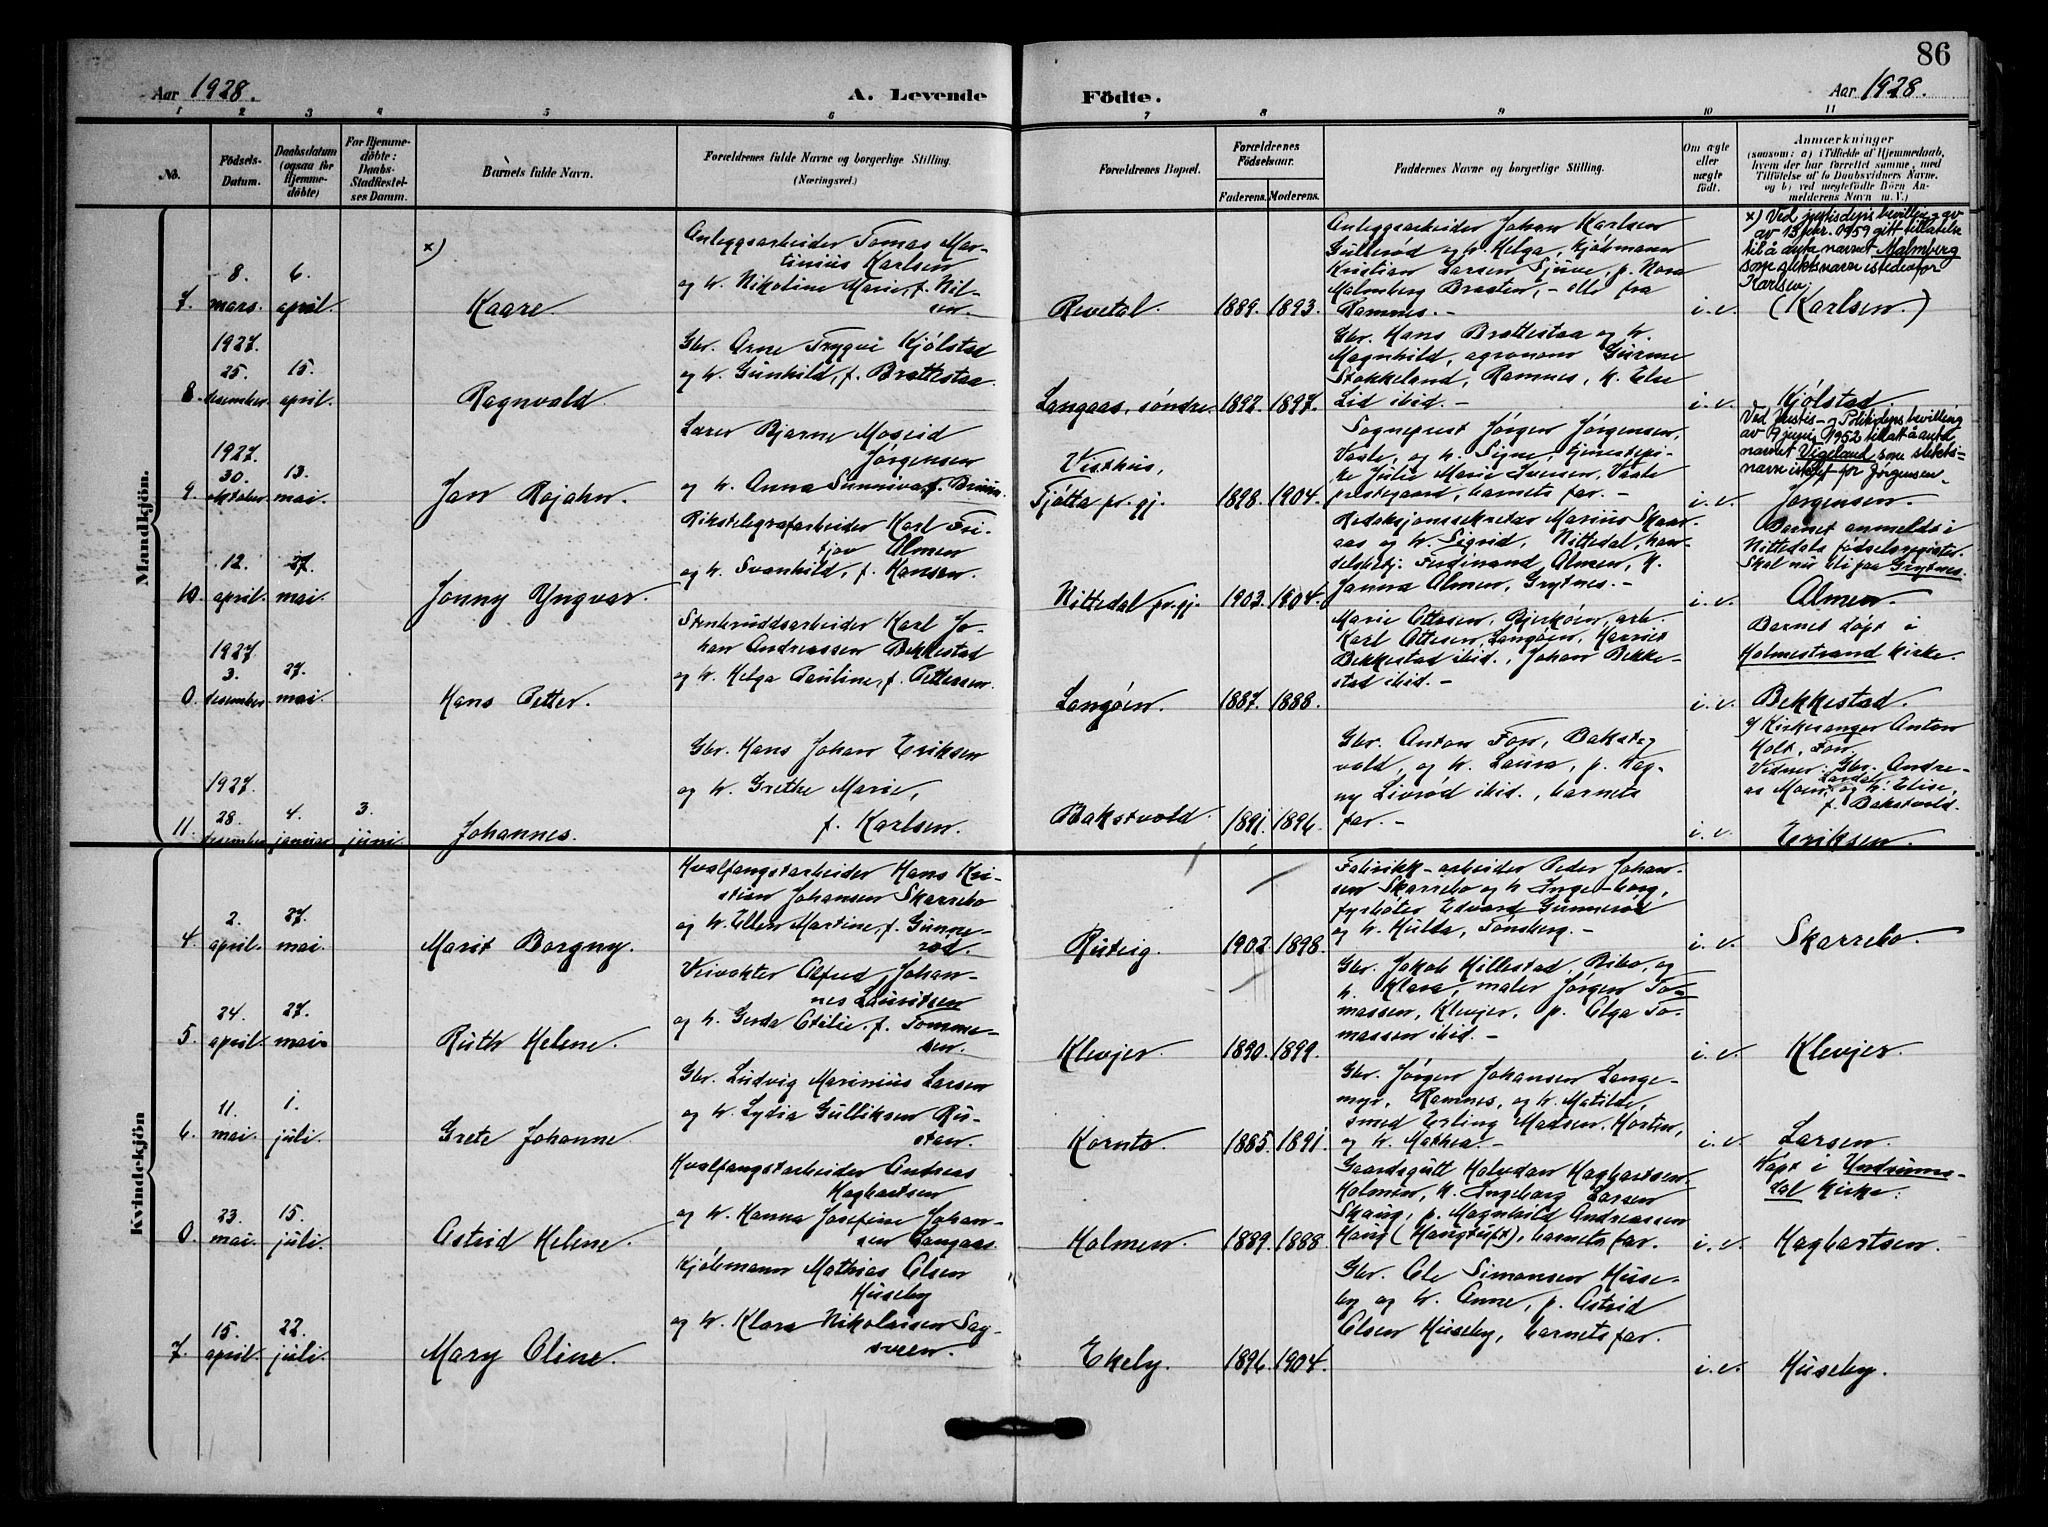 86
Aar 1928.
A. Levende Födte.
Aar 1928.
1 2 3 4 5 6 7 8 9 10 11
No.
Födsels-Datum.
Daabsdatum (ogsaa for Hjemme-döbte)
For Hjemme-döbte: Daabs-Stadfæstel-ses Datum.
Barnets fulde Navn.
Forældrenes fulde Navne og borgerlige Stilling.
(Næringsvei.)
Forældrenes Bopæl.
Forældrenes Födselsaar.
Faderens. Moderens.
Faddernes Navne og borgerlige Stilling.
Om ægte eller uægte födt.
Anmærkninger
(saasom: a) i Tilfælde af Hjemmedaab, hvem der har forrettet samme, med Tilföielse af to Daabsvidners Navne. og b) ved uegtefödte Börn An-melderens Navn m. V.)
Mandkjön.
7. 8. mars. 6. april.
x)
Kaare
Anleggsarbeider Tomas Mar-
tinius Karlsen
og h. Nikoline Marie, f. Nil-
sen.
Revetal. 1889. 1893.
Anleggsarbeider Johan Karlsen
Gullerød og h. Helga, kjøbmann
Kristian Larsen Sjuve, p. Nora
Malmberg Brøsten, - alle fra
Ramnes. -
i.e.
x) Ved justisdeps bevilling av
av 13 febr. 1959 gitt tillatelse
til å anta navnet Malmberg
som slektsnavn istedenfor
Karlsen.
(Karlsen.)
8. 1927. 25. desember. 15. april.
Ragnvald
Gbr. Arne Trygve Kjølstad
og h. Gunhild, f. Brattestaa.
Langaas, søndre. 1892. 1897.
Gbr. Hans Brattestaa og h.
Magnhild, agronom Gunnar
Stokkeland, Ramnes, k. Else
Lid ibid. -
i.e.
Kjølstad.
9. 1927. 30. oktober. 13. mai.
Jan Rojahn.
Lærer Bjarne Moseid
Jørgensen
og h. Anna Sunniva, f. Bruun.
Visthus,
Tjøtta pr.gj. 1898. 1904.
Sogneprest Jørgen Jørgensen,
Vaale, og h. Signe, tjenestepi-
ke Julie Marie Iversen, Vaale
prestegaard, barnets far. -
i.e.
Ved Justis- og Politideps bevilling
av 9 juni 1952 tillatt å anta
navnet Vigeland som slekts-
navn istedet for Jørgensen.
Jørgensen.
10. 12. april. 27. mai.
Jonny Yngvar.
Rikstelegrafarbeider Karl Fri-
tjov Almen
og h. Svanhild, f. Hansen.
Nittedal pr.gj. 1903. 1904.
Redaksjonssekretær Marius Skaar-
aas og h. Sigrid, Nittedal, han-
delsbetj. Ferdinand Almen, k.
Janna Almen, Grytnes. -
i.e.
Barnet anmeldt i
Nittedals fødselsregister.
Skal nu bli paa Grytnes.
Almen.
0. 1927. 3. desember. 27. mai.
Hans Petter.
Stenbruddsarbeider Karl Jo-
han Andreassen Bekkestad
og h. Helga Pauline, f. Pettersen.
Langøen. 1887. 1888.
Marie Ottosen, Bjerkøen, arb.
Karl Ottesen, Langøen, Harriet
Bekkestad ibid., Johan Bekke-
stad ibid. -
i.e.
Barnet døpt i
Holmestrand kirke.
Bekkestad.
11. 1927. 28. desember 4. januar 3. juni.
Johannes.
Gbr. Hans Johan Eriksen
og h. Grethe Marie,
f. Karlsen.
Bakstvold. 1891. 1896.
Gbr. Anton Fon, Bakst-
vold, og h. Laura, p. Dag-
ny Livrød ibid., barnets
far. -
i.e.
Kirkesanger Anton
Holt, Fon.
Vidner: Gbr. Andre-
as Moen, Lardal, og h. Elise,
f. Bakstvold.
Eriksen.
Kvindekjön
4. 2. april. 27. mai.
Marit Borgny.
Hvalfangstarbeider Hans Kri-
stian Johansen Skarrebo
og h. Ellen Martine, f. Gunne-
rød.
Rutvig. 1902. 1898.
Fabrikk-arbeider Peder Johan-
sen Skarrebo og h. Ingeborg,
fyrbøter Edvard Gunnerød
og h. Hulda, Tønsberg. -
i.e.
Skarrebo.
5. 24. april. 27. mai.
Ruth Helene.
Veivokter Alfred Johan-
nes Lauritsen
og h. Gerda Otilie, f. Tomme-
sen.
Klevjer. 1890. 1899.
Gbr. Jakob Hillestad, Bibo, og
h. Klara, maler Jørgen To-
massen, Klevjer, p. Olga To-
massen ibid. -
i.e.
Klevjer.
6. 11. mai. 1. juli.
Grete Johanne.
Gbr. Ludvig Marinius Larsen
og h. Lydia Gulliksen Ru-
stan.
Kornto 1885. 1891.
Gbr. Jørgen Johansen Lange-
myr, Ramnes, og h. Matilde,
smed Erling Madsen, Horten,
og h. Mathea. -
i.e.
Larsen.
0. 23. mai. 15. juli.
Astrid Helene.
Hvalfangstarbeider Andreas
Hagbartsen
og h. Hanna Josefine Johan-
sen Langaas.
Holmen. 1889. 1888.
Gaardsgutt Halvdan Hagbartsen
Holmen, k. Ingeborg Larsen
Skaug, p. Magnhild Andreassen
Haug (Haugtuft), barnets far.
i.e.
Døpt i Undrums-
dal kirke:
Hagbartsen.
7. 15. april. 22. juli.
Mary Oline.
Kjøbmann Mathias Olsen
Huseby
og h. Klara Nikolaisen Sag-
sveen.
Ekely. 1896. 1904.
Gbr. Ole Simonsen Huse-
by og h. Anne, p. Astrid
Olsen Huseby, barnets far.
i.e.
Huseby.